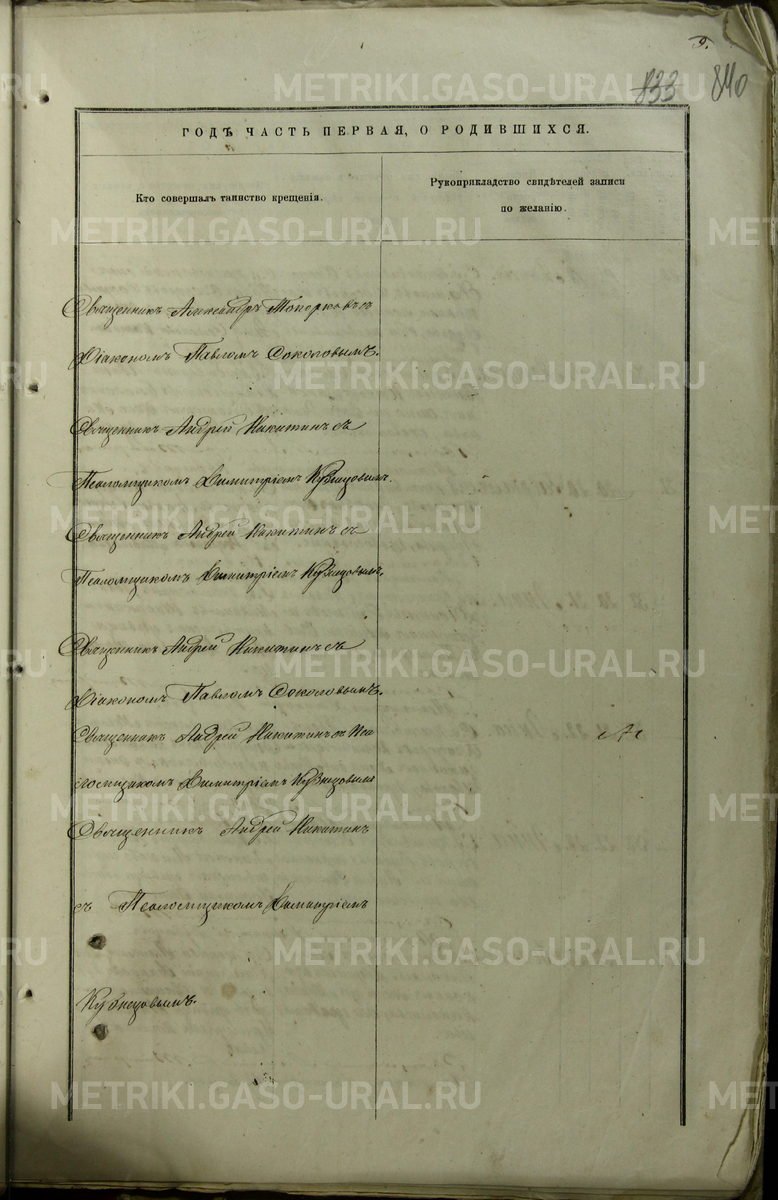 9.
833 840
ГОДЪ ЧАСТЬ ПЕРВАЯ, О РОДИВШИХСЯ.
Кто совершалъ таинство крещенія.
Рукоприкладство свидѣтелей записи
по желанію.
Священникъ Александръ Топорковъ съ
Діакономъ Павломъ Соколовымъ.
Священникъ Андрей Никитинъ съ
Псаломщикомъ Димитріемъ Кузнецовымъ.
Священникъ Андрей Никитинъ съ
Псаломщикомъ Димитріемъ Кузнецовымъ.
Священникъ Андрей Никитинъ съ
Діакономъ Павломъ Соколовымъ.
Священникъ Андрей Никитинъ съ Пса
ломщикомъ Димитріемъ Кузнецовымъ
Священникъ Андрей Никитинъ
съ Псаломщикомъ Димитріемъ
Кузнецовымъ.
METRIKI.GASO-URAL.RU